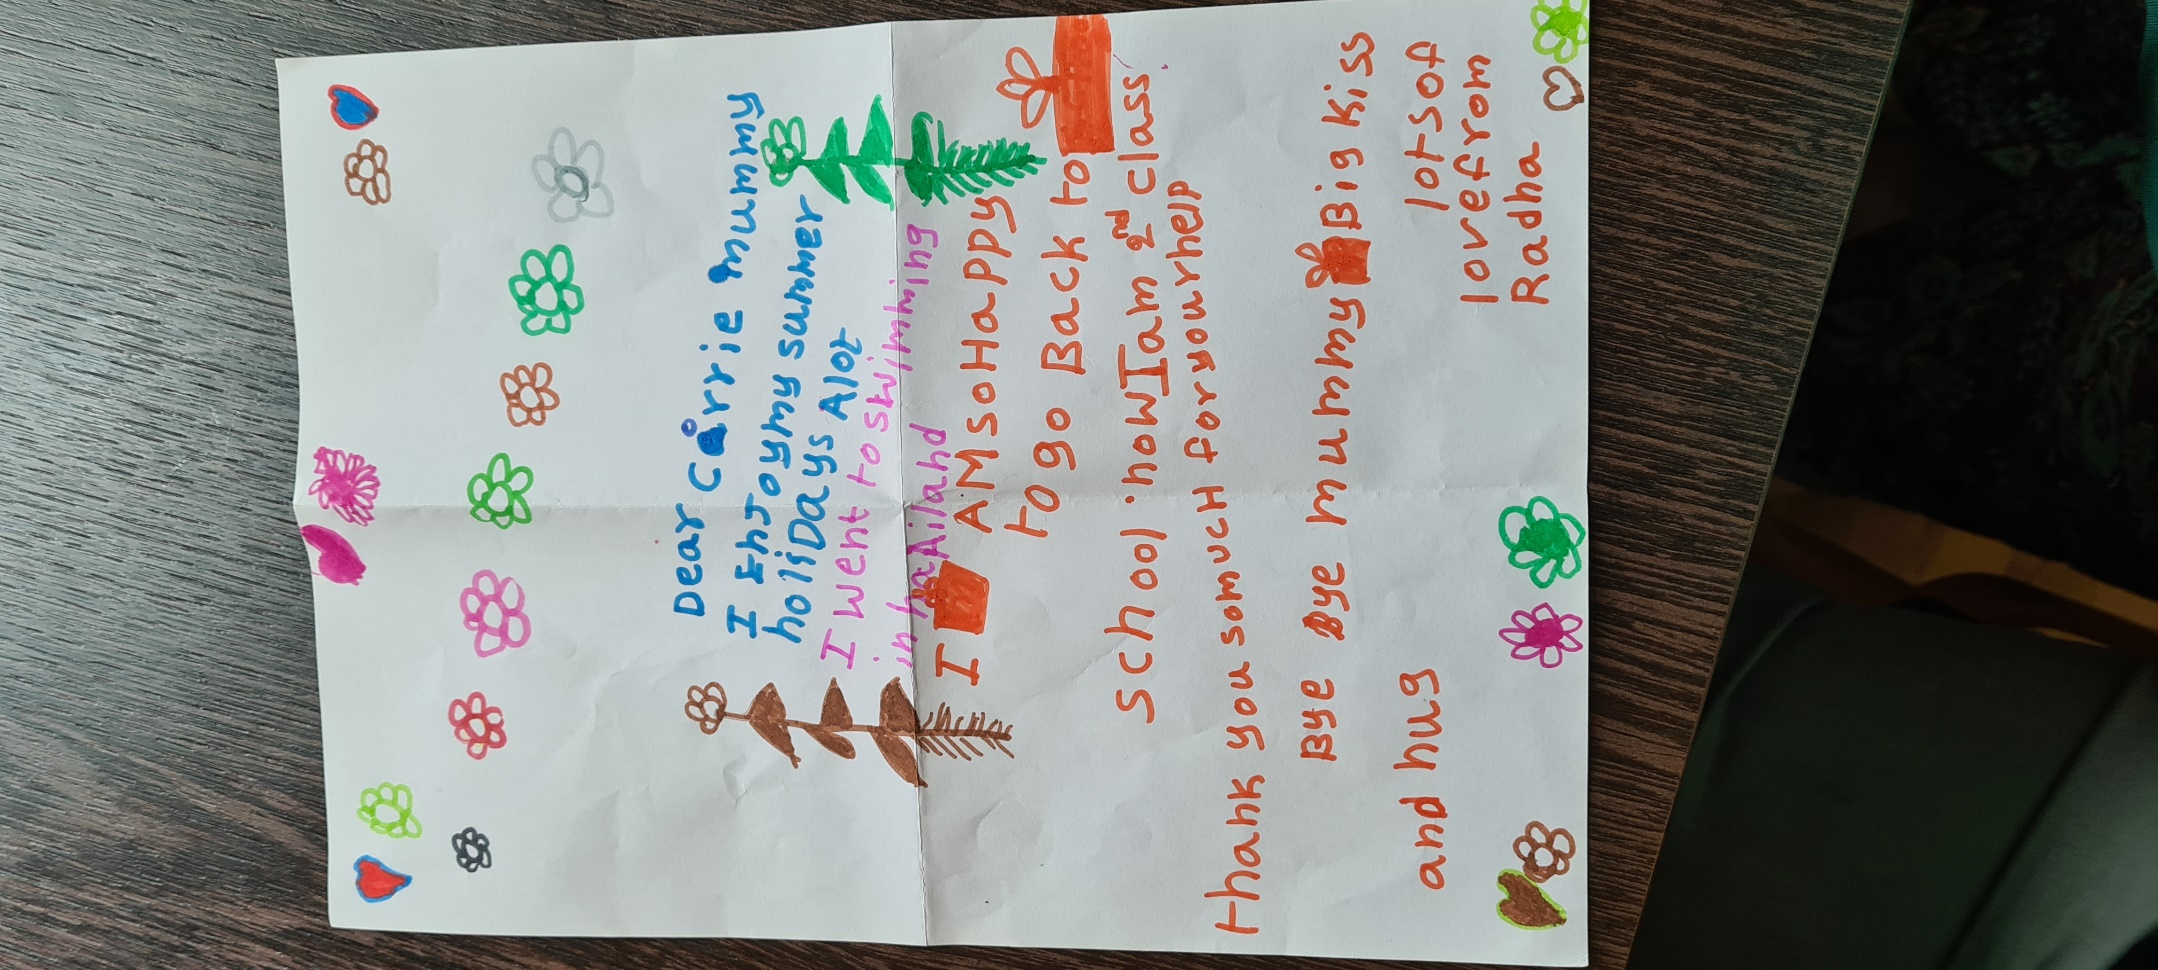 Dear Carrie mummy
I Enjoymy summer
holiDays Alot
I Went to swimming
in
I AMsoHappy
to go Back to
school. nowIam 2nd class
thank you somucH foryourhelp
Bye Bye mummy Big kiss
and hug lotsof
lovefrom
Radha